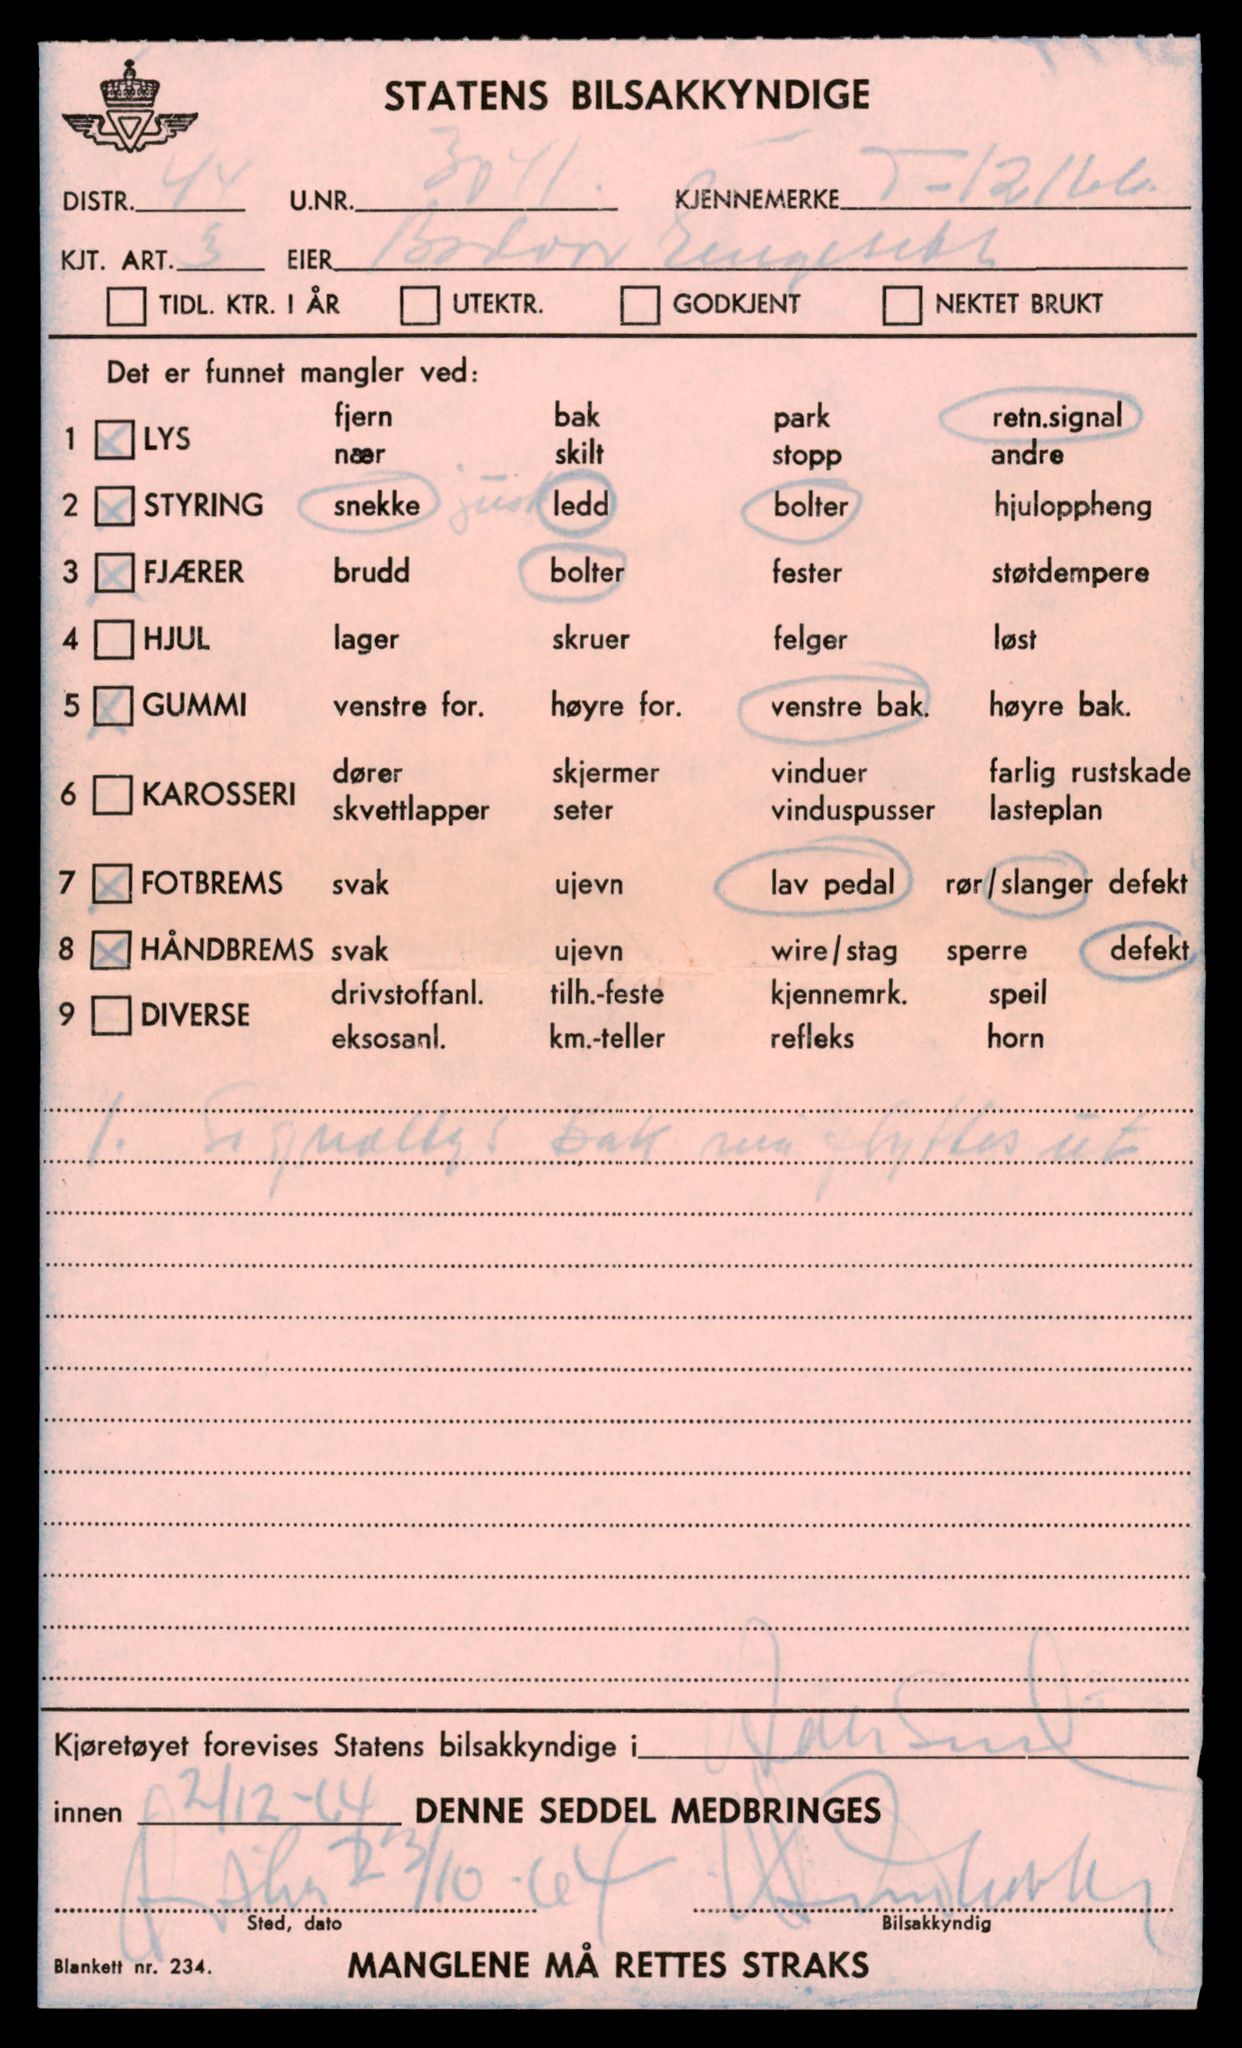 STATENS BILSAKKYNDIGE
DISTR. 44 U.NR. 3041. KJENNEMERKE T-12166
KJT. ART. 3 EIER
TIDL. KTR. I ÅR UTEKTR. GODKJENT NEKTET BRUKT
Det er funnet mangler ved:
fjern bak park retn.signal
1 LYS
nær skilt stopp andre
2 STYRING snekke just ledd bolter hjuloppheng
3 FJÆRER brudd bolter fester støtdempere
4 HJUL lager skruer felger løst
5 GUMMI venstre for. høyre for. venstre bak. høyre bak.
dører skjermer vinduer farlig rustskade
6 KAROSSERI
skvettlapper seter vinduspusser lasteplan
7 FOTBREMS svak ujevn lav pedal rør/slanger defekt
8 HÅNDBREMS svak ujevn wire/stag sperre defekt
drivstoffanl. tilh.-feste kjennemrk. speil
9 DIVERSE
eksosanl. km.-teller refleks horn
1. Signallys bak må flyttes ut
Kjøretøyet forevises Statens bilsakkyndige i
innen 2/12-64 DENNE SEDDEL MEDBRINGES
23/10-64
Sted, dato Bilsakkyndig
Blankett nr. 234. MANGLENE MÅ RETTES STRAKS